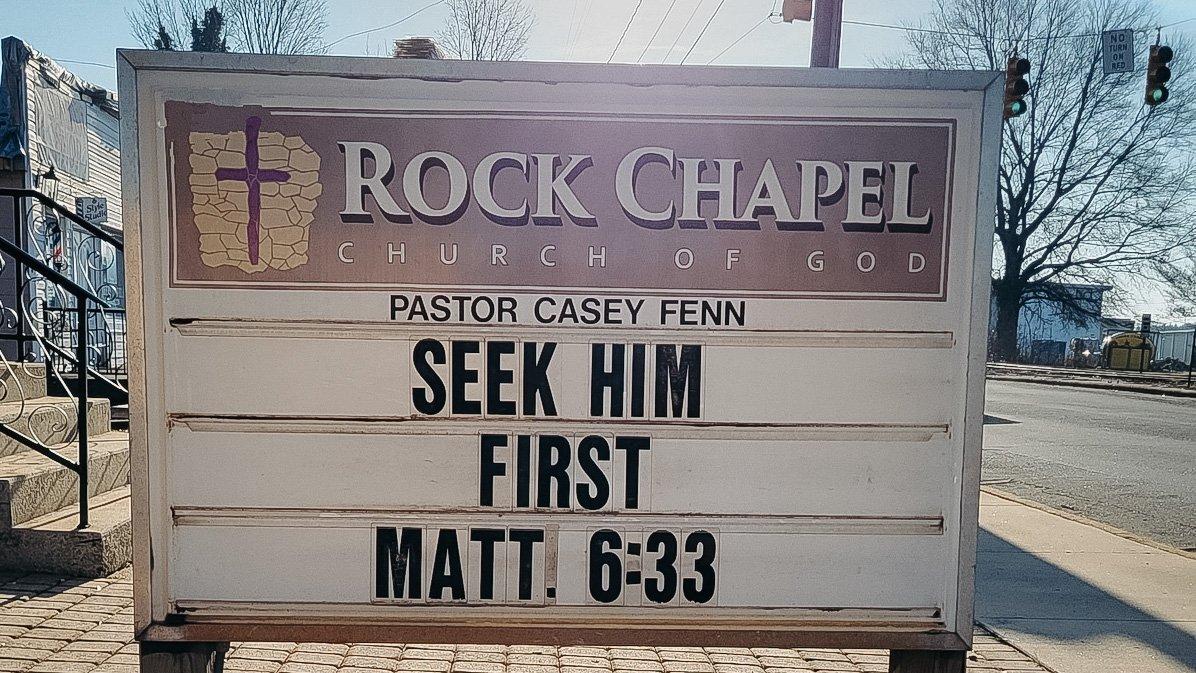 NO
TURN
ON
RED
Style
Studio
ROCK CHAPEL
CHURCH OF GOD
PASTOR CASEY FENN
SEEK HIM
FIRST
MATT. 6:33